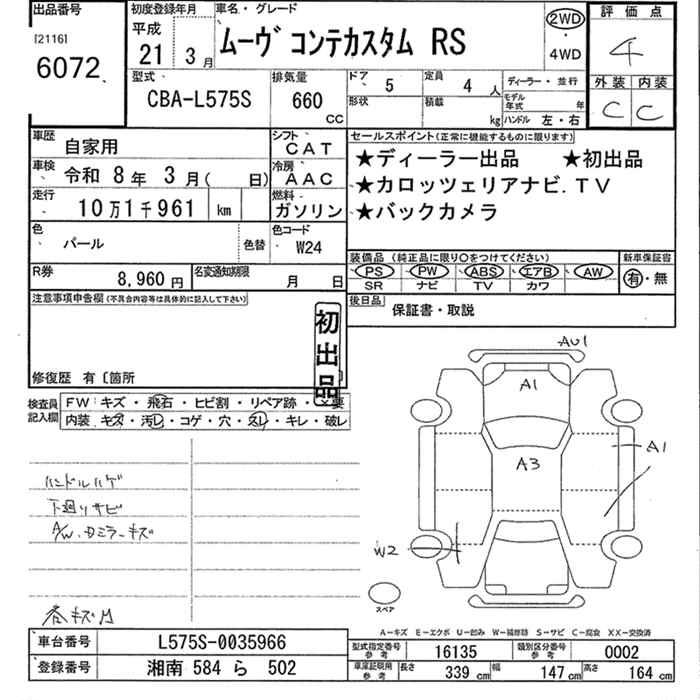 出品番号 初度登録年月 車名・グレード 評価点
[2116] 平成 2WD
6072 21年 3月 ムーヴ コンテカスタム RS ・ 4
4WD
型式 排気量 ドア 5 定員 4人 ディーラー・並行 外装 内装
CBA-L575S 660 CC 形状 積載 kg モデル年式 年 C C
ハンドル 左・右
車歴 自家用 シフト CAT セールスポイント(正常に機能するものに限ります)
車検 令和 8年 3月( 日) 冷房 AAC ★ディーラー出品 ★初出品
走行 10万1千961 km 燃料 ガソリン ★カロッツェリアナビ.TV
★バックカメラ
色 パール 色替 色コード W24
装備品(純正品に限り○をつけてください) 新車保証書
R券 8,960円 名変通知期限 月 日 PS PW ABS エアB AW 有・無
SR ナビ TV カワ
注意事項申告欄(不具合内容等は具体的に記入して下さい) 後日品 保証書・取説
初出品
修復歴 有〔箇所
検査員記入欄 FW:キズ・飛石・ヒビ割・リペア跡・×要
内装 キズ・汚レ・コゲ・穴・スレ・キレ・破レ
AU1
A1
A3
A1
W2
ハンドルハゲ
下廻りサビ
A/W.Dミラーキズ
スペア
A-キズ E-エクボ U-凹み W-補修跡 S-サビ C-腐食 XX-交換済
車台番号 L575S-0035966
型式指定番号 参考 16135 類別区分番号 参考 0002
登録番号 湘南 584 ら 502
車庫証明用 参考 長さ 339cm 幅 147cm 高さ 164cm